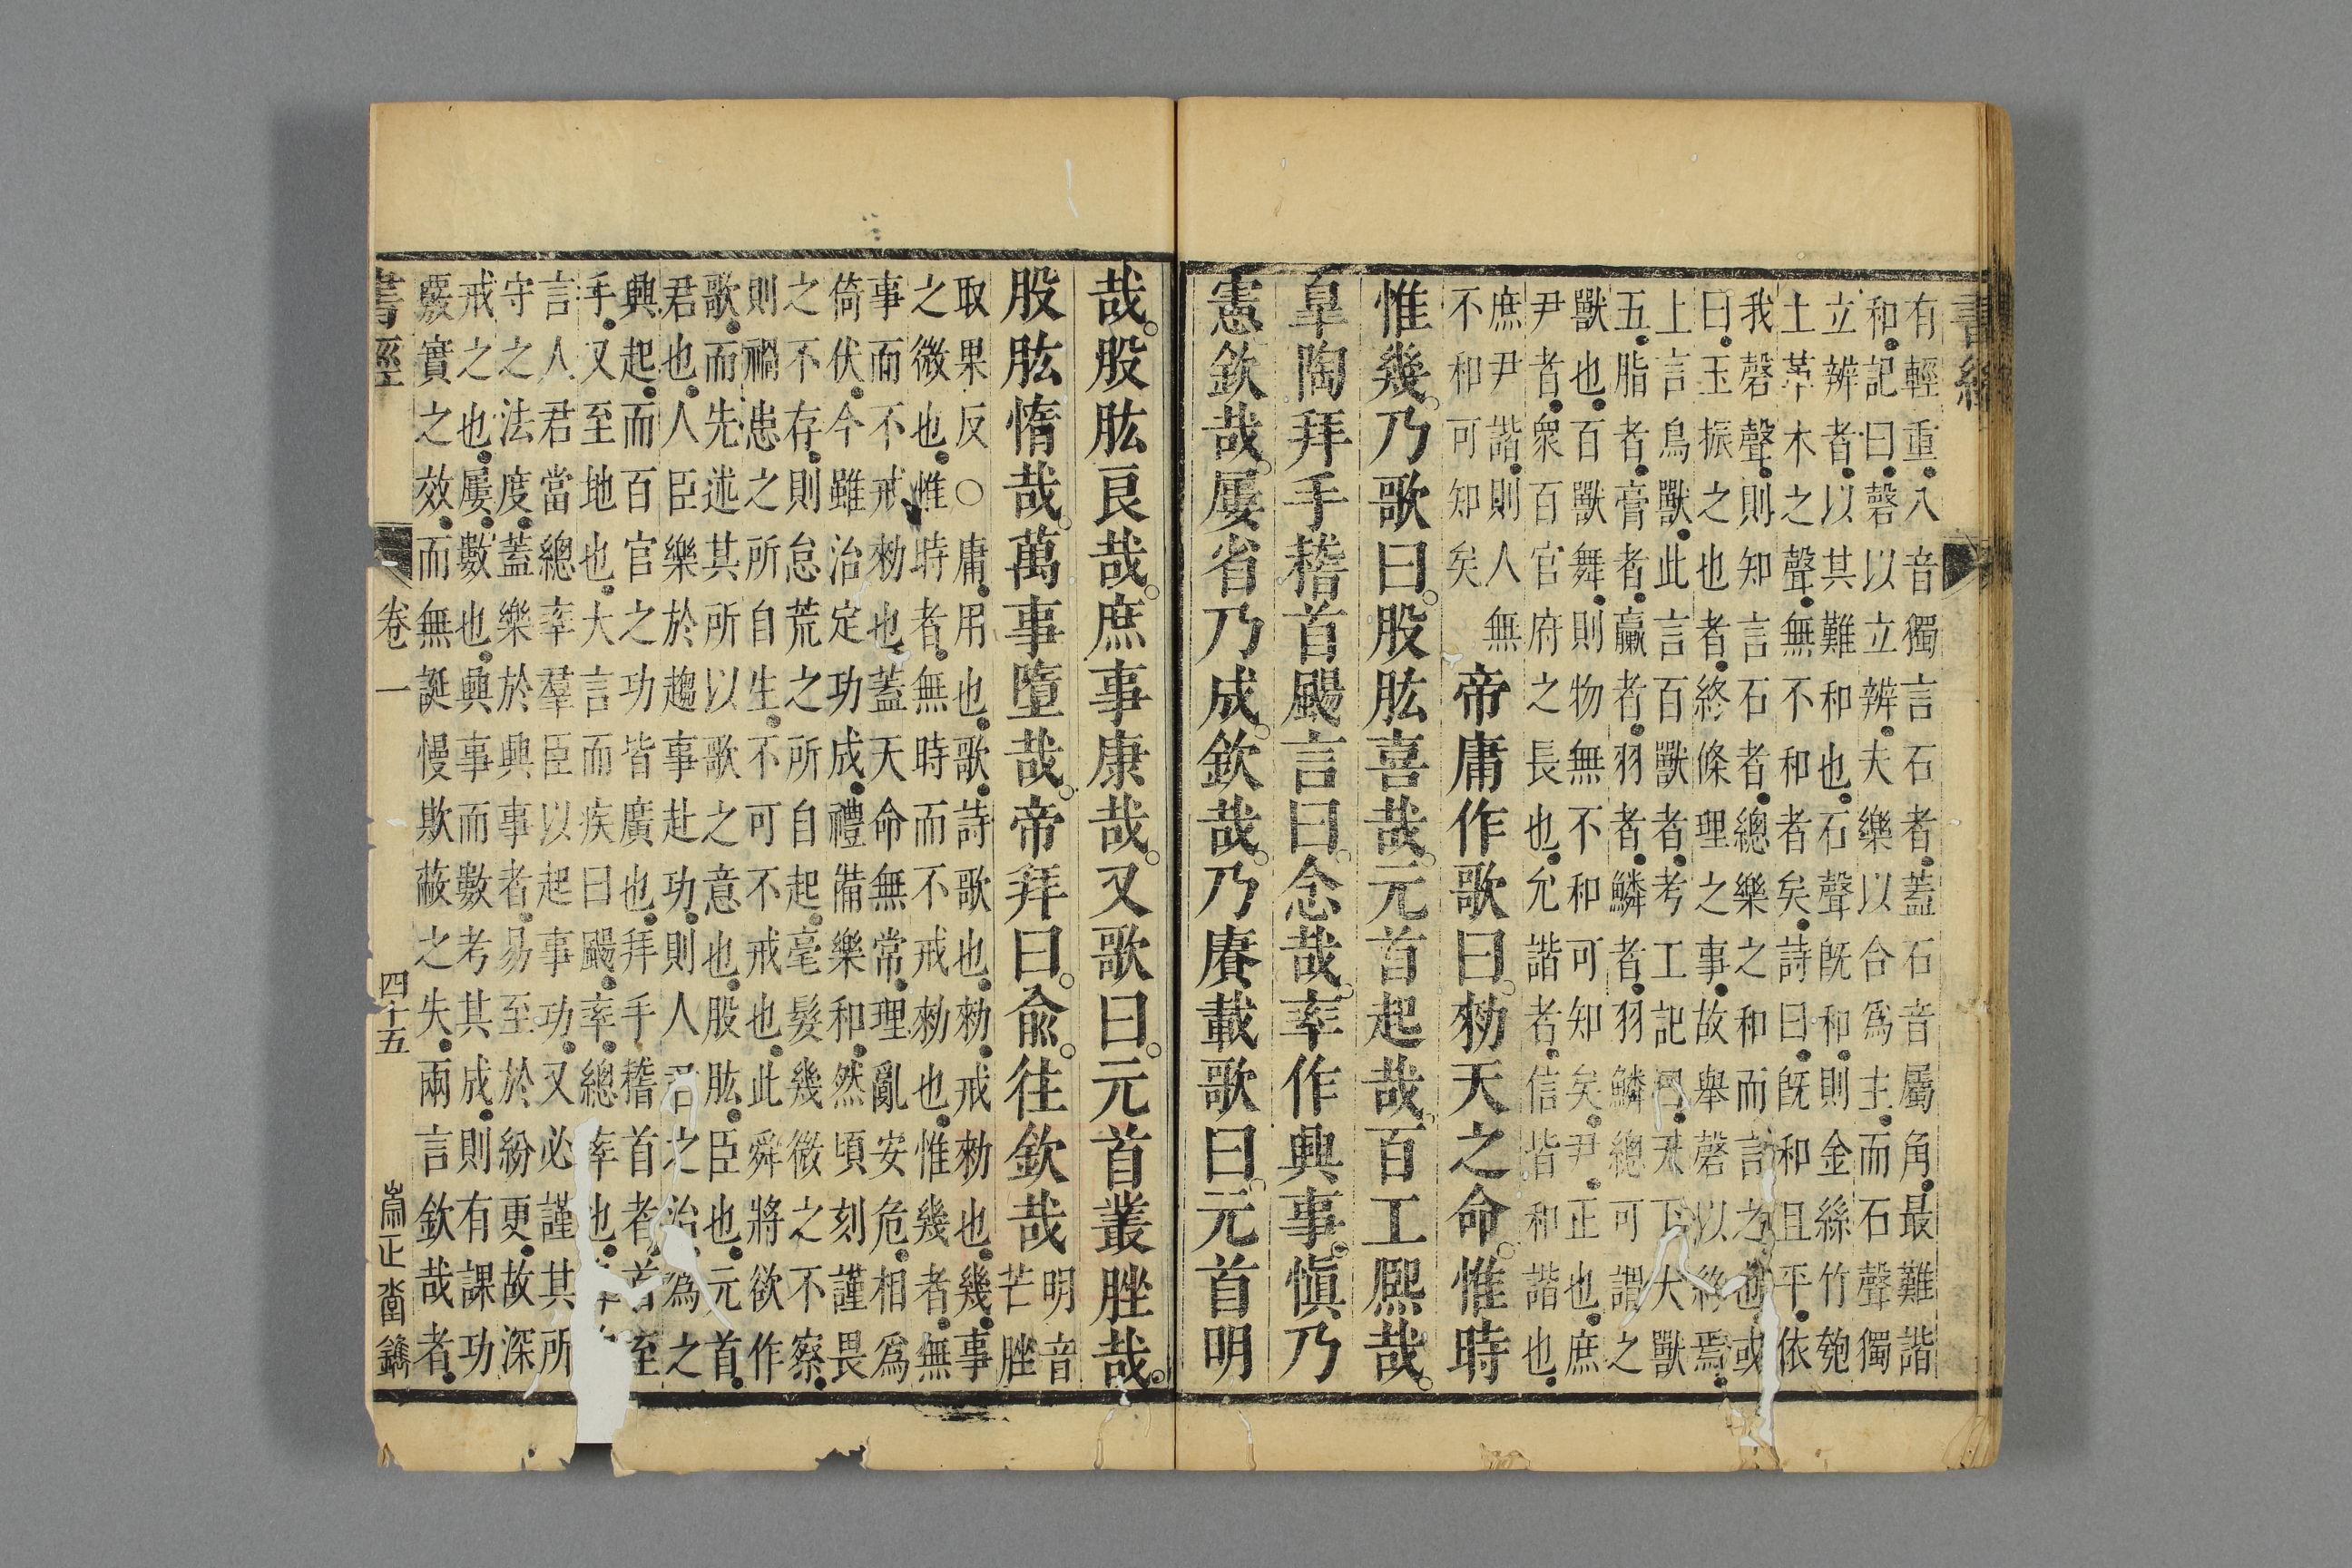 書經
有輕重八音獨言石者蓋石音屬角最難諧
和記曰磬以立辨夫樂以合爲主而石聲獨
立辨者以其難和也石聲旣和則金絲竹匏
土革木之聲無不和者矣詩曰旣和且平依
我磬聲則知言石者總樂之和而言之也或
曰玉振之也者終條理之事故舉磬以終焉
上言鳥獸此言百獸者考工記曰天下大獸
五脂者膏者臝者羽者鱗者羽鱗總可謂之
獸也百獸舞則物無不和可知矣尹正也庶
尹者衆百官府之長也允諧者信皆和諧也
庶尹諧則人無
不和可知矣
帝庸作歌曰勑天之命惟時
惟幾乃歌曰股肱喜哉元首起哉百工熙哉
皐陶拜手稽首颺言曰念哉率作興事愼乃
憲欽哉屢省乃成欽哉乃賡載歌曰元首明
哉股肱良哉庶事康哉又歌曰元首叢脞哉
股肱惰哉萬事墮哉帝拜曰兪往欽哉
明音
芒脞
取果反○庸用也歌詩歌也勑戒勑也幾事
之微也惟時者無時而不戒勑也惟幾者無
事而不戒勑也蓋天命無常理亂安危相爲
倚伏今雖治定功成禮備樂和然頃刻謹畏
之不存則怠荒之所自起毫髮幾微之不察
則禍患之所自生不可不戒也此舜將欲作
歌而先述其所以歌之意也股肱臣也元首
君也人臣樂於趨事赴功則人君之治爲之
興起而百官之功皆廣也拜手稽首者首至
手又至地也大言而疾曰颺率總率也
言人君當總率羣臣以起事功又必謹其所
守之法度蓋樂於興事者易至於紛更故深
戒之也屢數也興事而數考其成則有課功
覈實之效而無誕慢欺蔽之失兩言欽哉者
書經
卷一
四十五
崇正堂鐫